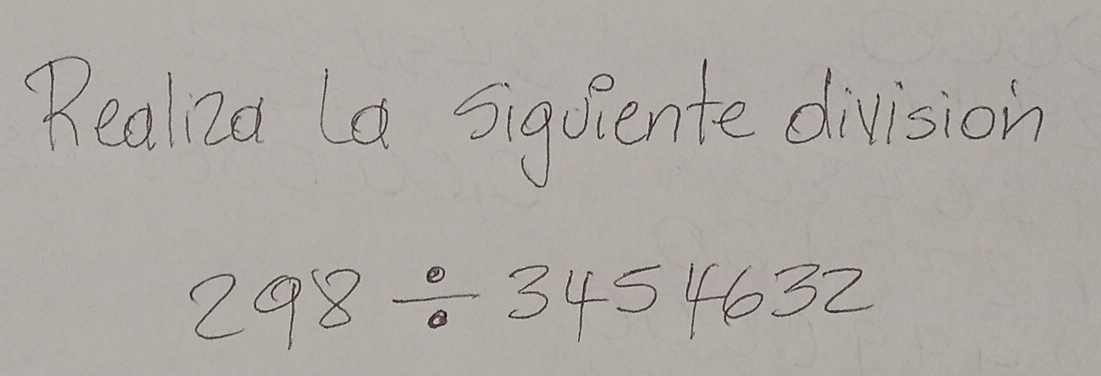 Realiza la siguiente división
298 ÷ 3454632